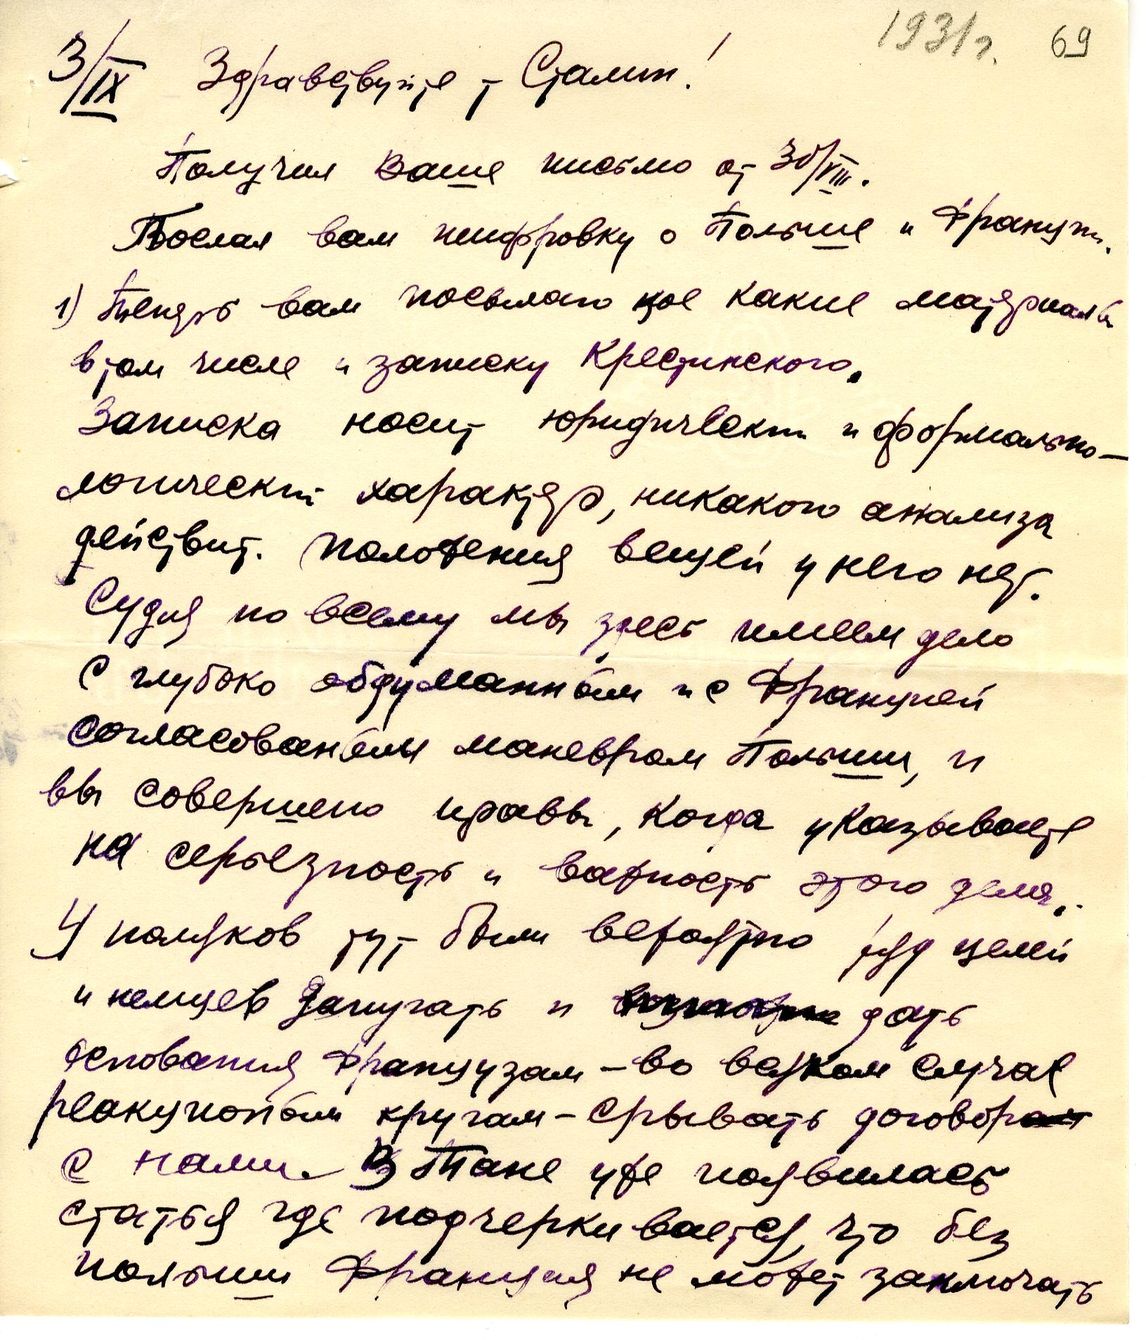 1931 г. 69
3/IX Здравствуйте т Сталин!
Получил Ваше письмо от 30/VIII.
Послал вам шифровку о Польше и Франции.
1) Теперь вам посылаю кое какие материалы
в том числе и записку Крестинского.
Записка носит юридический и формально-
логический характер, никакого анализа
действит. положения вещей у него нет.
Судя по всему мы здесь имеем дело
с глубоко обдуманным и с Францией
согласованым маневром Польши, и
вы совершено правы, когда указываете
на серьезность и важность этого дела.
У поляков тут были вероятно ряд целей
и немцев запугать и дать
основания французам – во всяком случае
реакционым кругам – срывать договор
с нами. В Тане уже появилась
статья где подчеркивается, что без
польши Франция не может заключать